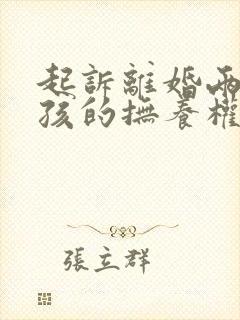 起訴離婚兩
孩的撫養權
張立群